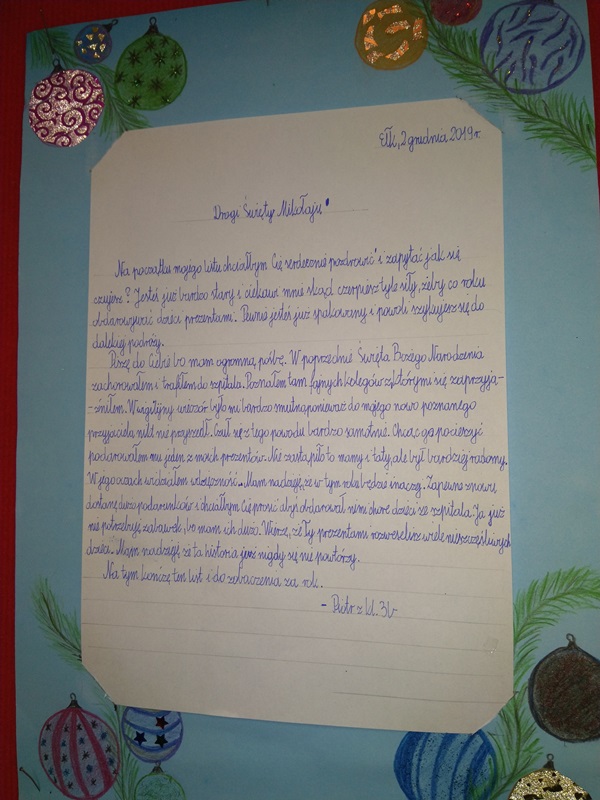 Ełk, 2 grudnia 2019 r.
Drogi Święty Mikołaju!
Na początku mojego listu chciałbym Cię serdecznie pozdrowić i zapytać jak się
czujesz? Jesteś już bardzo stary i ciekawi mnie skąd czerpiesz tyle siły, żeby co roku
obdarowywać dzieci prezentami. Pewnie jesteś już spakowany i powoli szykujesz się do
dalekiej podróży.
Piszę do Ciebie bo mam ogromną prośbę. W poprzednie Święta Bożego Narodzenia
zachorowałem i trafiłem do szpitala. Poznałem tam fajnych kolegów z którymi się zaprzyja-
-źniłem. W wigilijny wieczór było mi bardzo smutno ponieważ do mojego nowo poznanego
przyjaciela nikt nie przyszedł. Czuł się z tego powodu bardzo samotnie. Chcąc go pocieszyć
podarowałem mu jeden z moich prezentów. Nie zastąpiło to mamy i taty, ale był bardziej radosny.
W jego oczach widziałem wdzięczność. Mam nadzieję, że w tym roku będzie inaczej. Zapewne znowu
dostanę dużo podarunków i chciałbym Cię prosić abyś obdarował nimi chore dzieci ze szpitala. Ja już
nie potrzebuję zabawek, bo mam ich dużo. Wierzę, że Ty prezentami rozweselisz wiele nieszczęśliwych
dzieci. Mam nadzieję, że ta historia już nigdy się nie powtórzy.
Na tym kończę ten list i do zobaczenia za rok.
- Piotr z kl. 3b